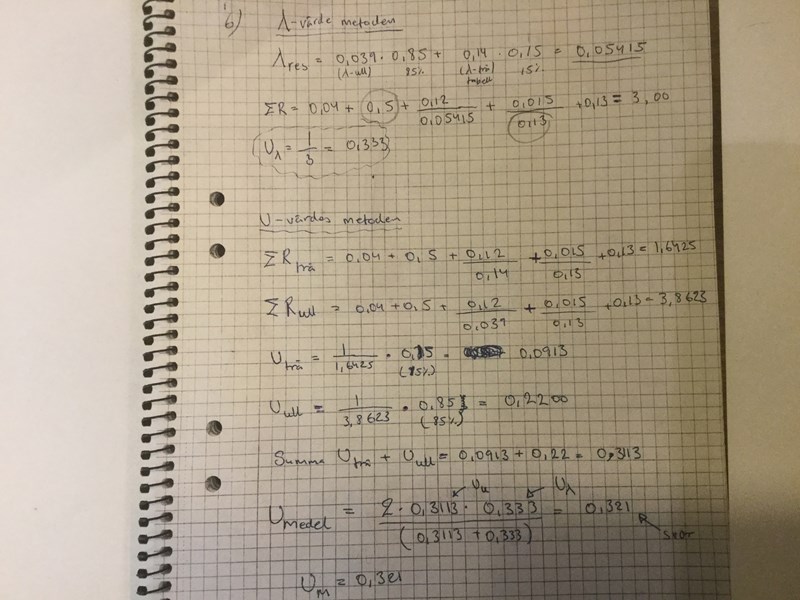 b) λ-värde metoden
λres = 0,039 · 0,85 + 0,14 · 0,15 = 0,05415
(λ-ull) 85% (λ-trä) 15%
tabell
ΣR = 0,04 + 0,5 + 0,12/0,05415 + 0,015/0,13 + 0,13 = 3,00
Uλ = 1/3 = 0,333
U-värdes metoden
ΣRträ = 0,04 + 0,5 + 0,12/0,14 + 0,015/0,13 + 0,13 = 1,6425
ΣRull = 0,04 + 0,5 + 0,12/0,039 + 0,015/0,13 + 0,13 = 3,8623
Uträ = 1/1,6425 · 0,15 = 0,0913
(15%)
Uull = 1/3,8623 · 0,85 = 0,2200
(85%)
Summa Uträ + Uull = 0,0913 + 0,22 = 0,313
Uu Uλ
Umedel = 2 · 0,3113 · 0,333/(0,3113 + 0,333) = 0,321
svar
UM = 0,321